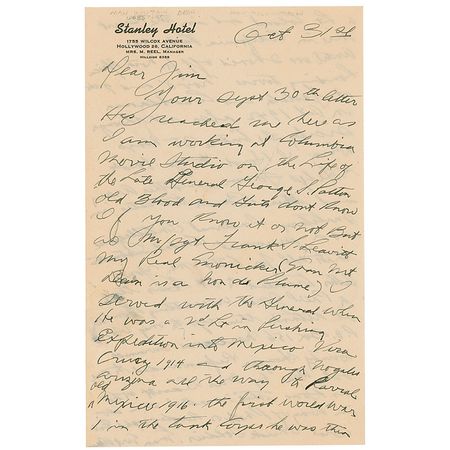 Stanley Hotel
1755 WILCOX AVENUE
HOLLYWOOD 28, CALIFORNIA
MRS. M. REEL, MANAGER
HILLSIDE 8369
Oct 3
Dear Jim
Your Sept 30th letter
Has reached me here as
I am working at Columbia
Movie Studio on the Life of
the Late General George S. Patton
old Blood and Guts dont Know
If you Know it or not But
as M/Sgt Frank S. Leavitt
My Real Monicker (Man Mt
Dean is a Nom de Plume) I
served with the General when
He was a 2nd Lt in Pershing
Expedition into Mexico Vera
Cruz 1914 and through Nogales
Arizona all the way to Parral
old Mexico 1916. the first World War
I in the tank Corps he was then